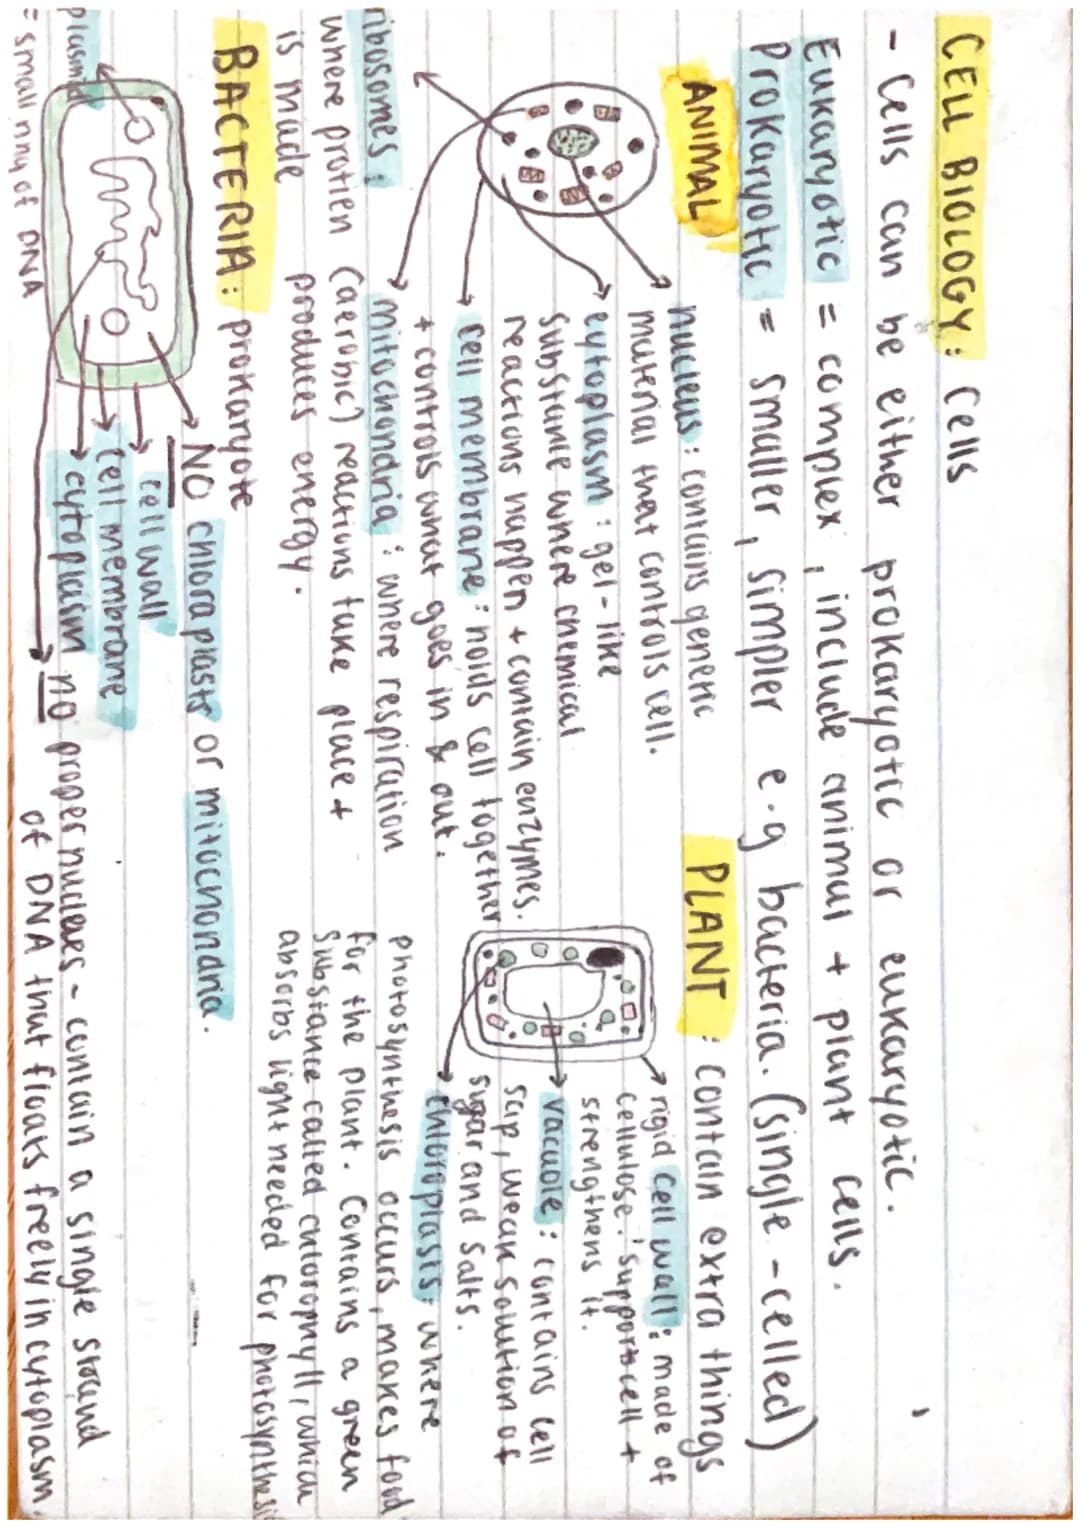 CELL BIOLOGY: Cells
- Cells can be either prokaryotic or eukaryotic.
Eukaryotic = complex, include animal + plant cells.
Prokaryotic = smaller, simpler e.g bacteria. (single-celled)
ANIMAL
nucleus: contains genetic
material that controls cell.
cytoplasm: gel-like
substance where chemical
reactions happen + contain enzymes.
cell membrane: holds cell together
+ controls what goes in & out.
mitochondria: where respiration
(aerobic) reactions take place +
produces energy.
ribosomes:
where protien
is made
PLANT: contain extra things
rigid cell wall: made of
cellulose. supports cell +
strengthens it.
vacuole: contains cell
sap, weak solution of
sugar and salts.
chloroplasts: where
photosynthesis occurs, makes food
for the plant. Contains a green
substance called chlorophyll, which
absorbs light needed for photosynthesis
BACTERIA: prokaryote
NO chloraplasts or mitochondria.
cell wall
cell membrane
cytoplasm
no proper nucleaes - contain a single strand
of DNA that floats freely in cytoplasm.
plasmid
= small ring of DNA